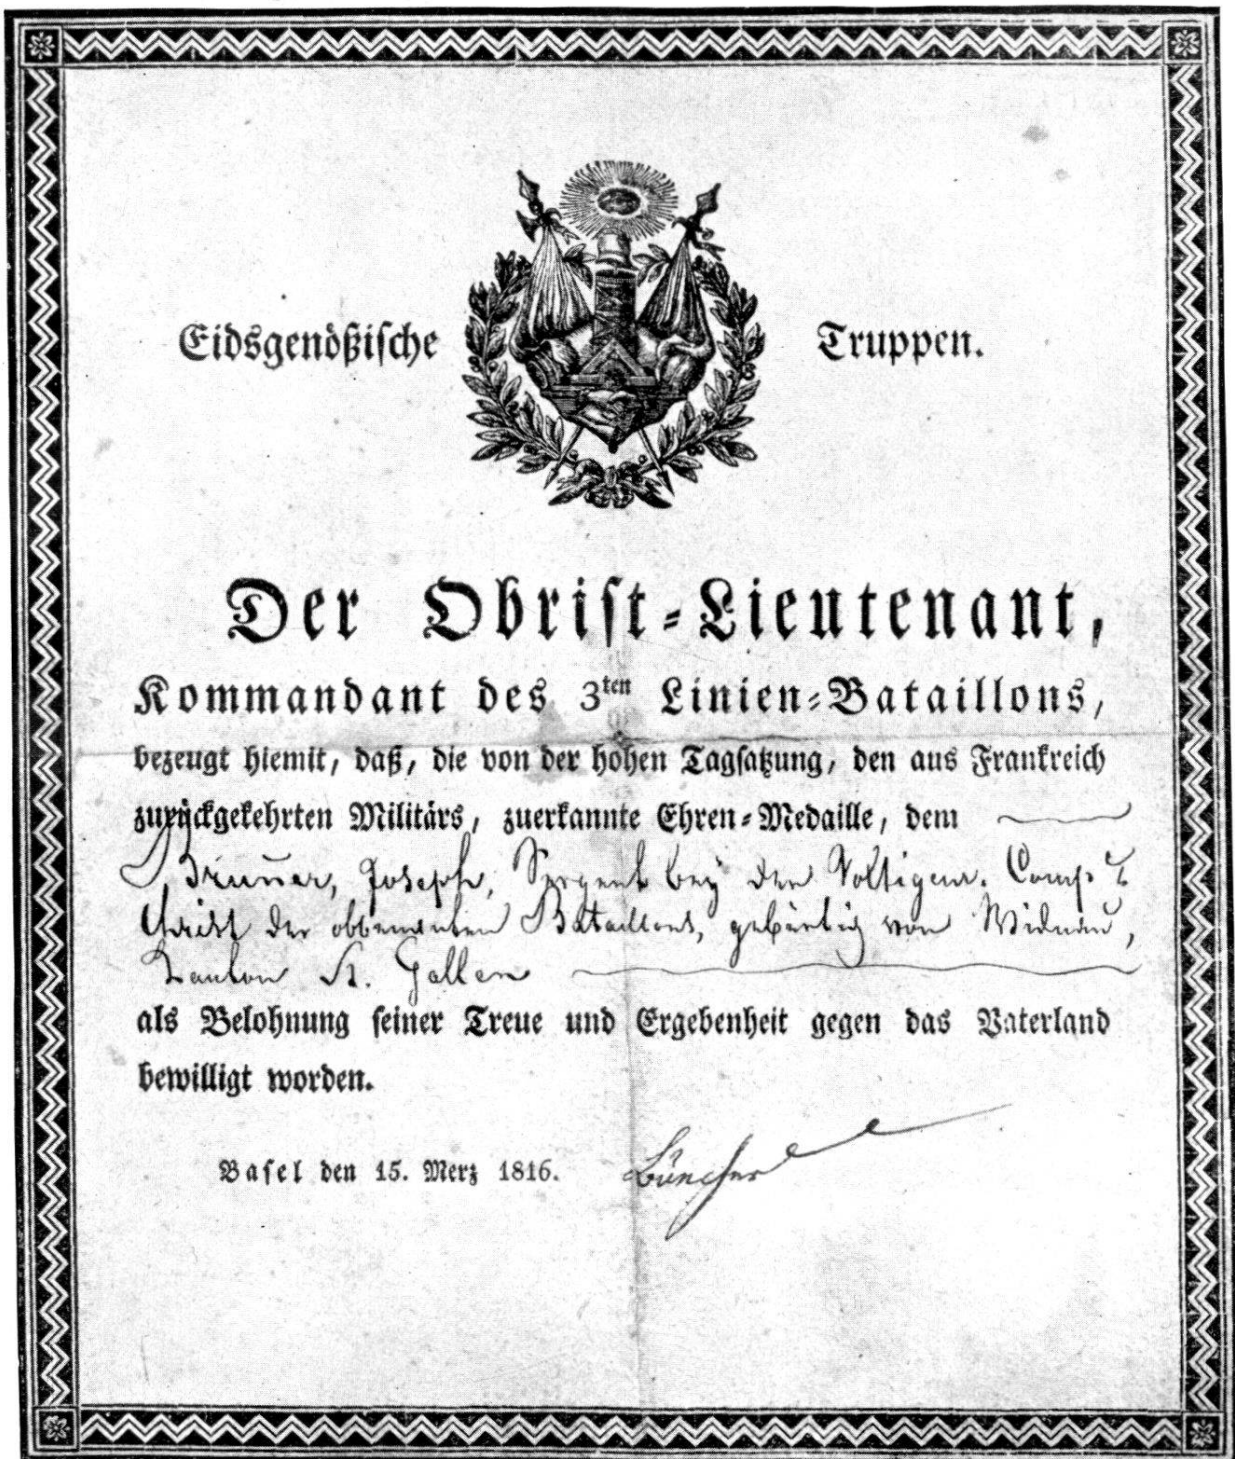 Eidsgenößische Truppen.
Der Obrist-Lieutenant,
Kommandant des 3ten Linien-Bataillons,
bezeugt hiemit, daß, die von der hohen Tagsatzung, den aus Frankreich
zurückgekehrten Militärs, zuerkannte Ehren-Medaille, dem
Joseph, Sergent bey der Voltigeur. Comp
der obbemelten Bataillons, gebürtig von Widnau,
Kanton St. Gallen
als Belohnung seiner Treue und Ergebenheit gegen das Vaterland
bewilligt worden.
Basel den 15. Merz 1816.